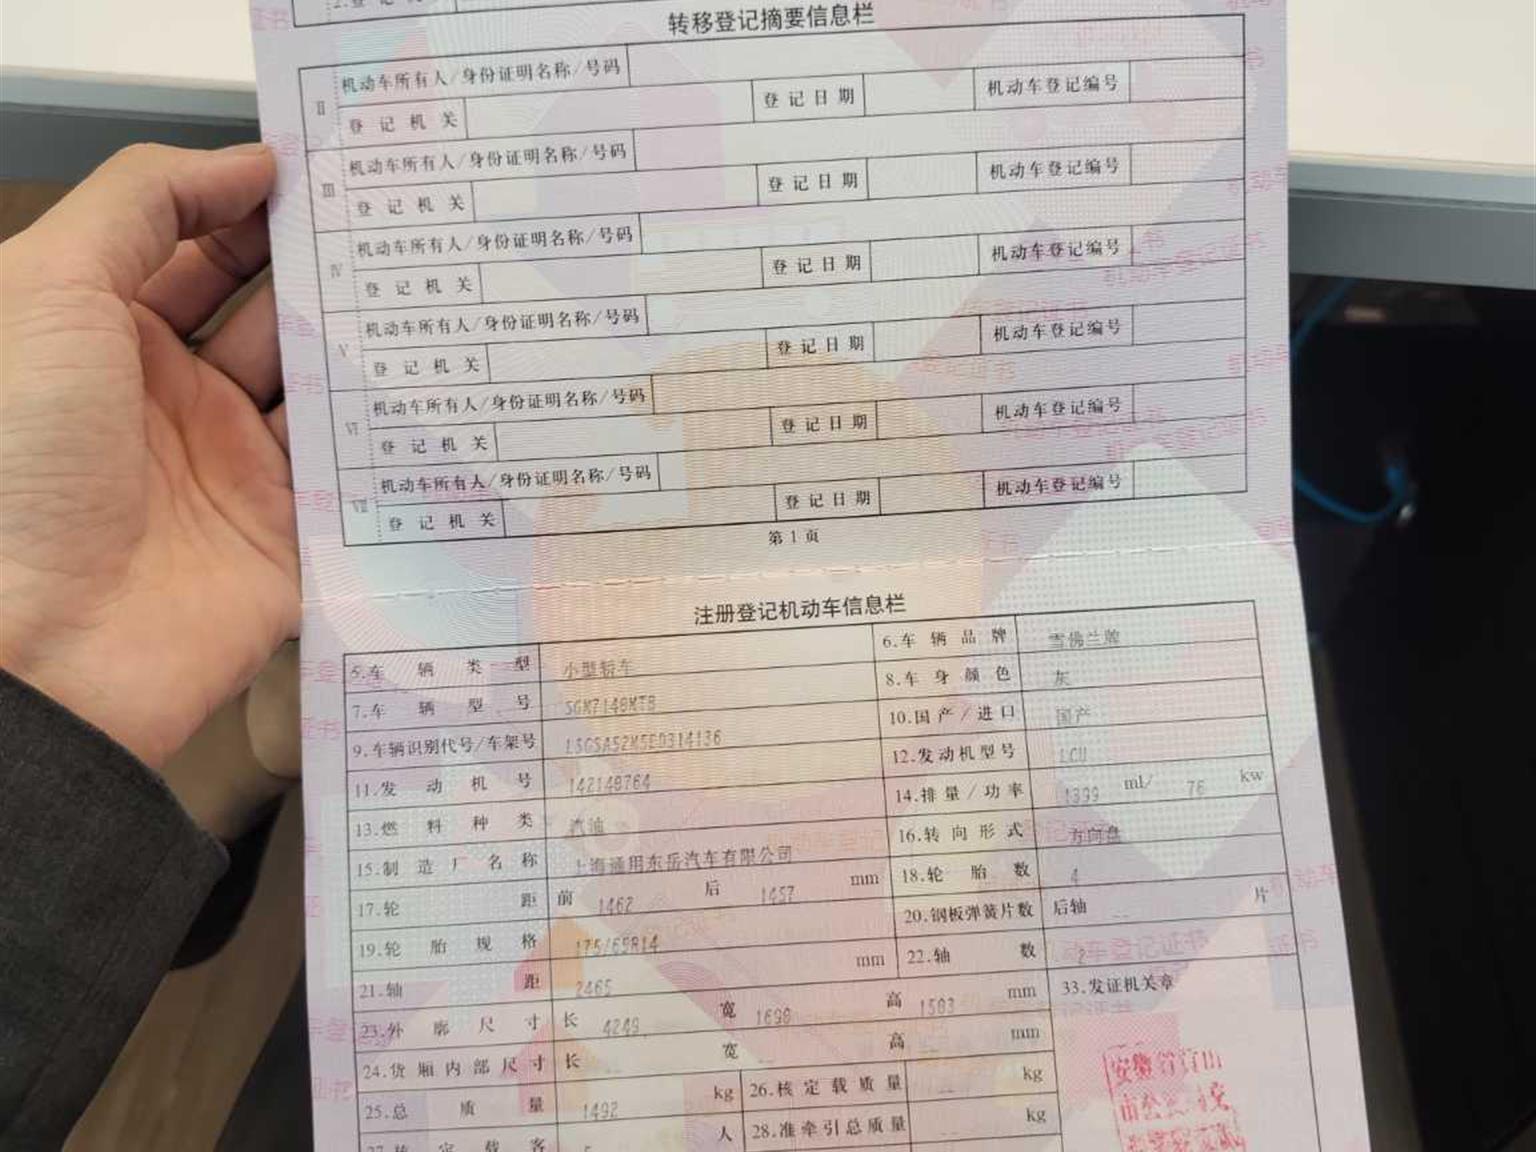 转移登记摘要信息栏
Ⅱ 机动车所有人/身份证明名称/号码
登记机关 登记日期 机动车登记编号
Ⅲ 机动车所有人/身份证明名称/号码
登记机关 登记日期 机动车登记编号
Ⅳ 机动车所有人/身份证明名称/号码
登记机关 登记日期 机动车登记编号
Ⅴ 机动车所有人/身份证明名称/号码
登记机关 登记日期 机动车登记编号
Ⅵ 机动车所有人/身份证明名称/号码
登记机关 登记日期 机动车登记编号
Ⅶ 机动车所有人/身份证明名称/号码
登记机关 登记日期 机动车登记编号
第1页
注册登记机动车信息栏
5.车辆类型 小型轿车 6.车辆品牌 雪佛兰牌
7.车辆型号 SGM7148MTB 8.车身颜色 灰
9.车辆识别代号/车架号 LSGSA52M5ED314136 10.国产/进口 国产
11.发动机号 142148764 12.发动机型号 LCU
13.燃料种类 汽油 14.排量/功率 1399 ml/ 76 kw
15.制造厂名称 上海通用东岳汽车有限公司 16.转向形式 方向盘
17.轮距 前 1462 后 1457 mm 18.轮胎数 4
19.轮胎规格 175/65R14 20.钢板弹簧片数 后轴 -- 片
21.轴距 2465 mm 22.轴数 2
23.外廓尺寸 长 4249 宽 1690 高 1503 mm 33.发证机关章
24.货厢内部尺寸 长 -- 宽 -- 高 -- mm
25.总质量 1492 kg 26.核定载质量 -- kg
人 28.准牵引总质量 -- kg